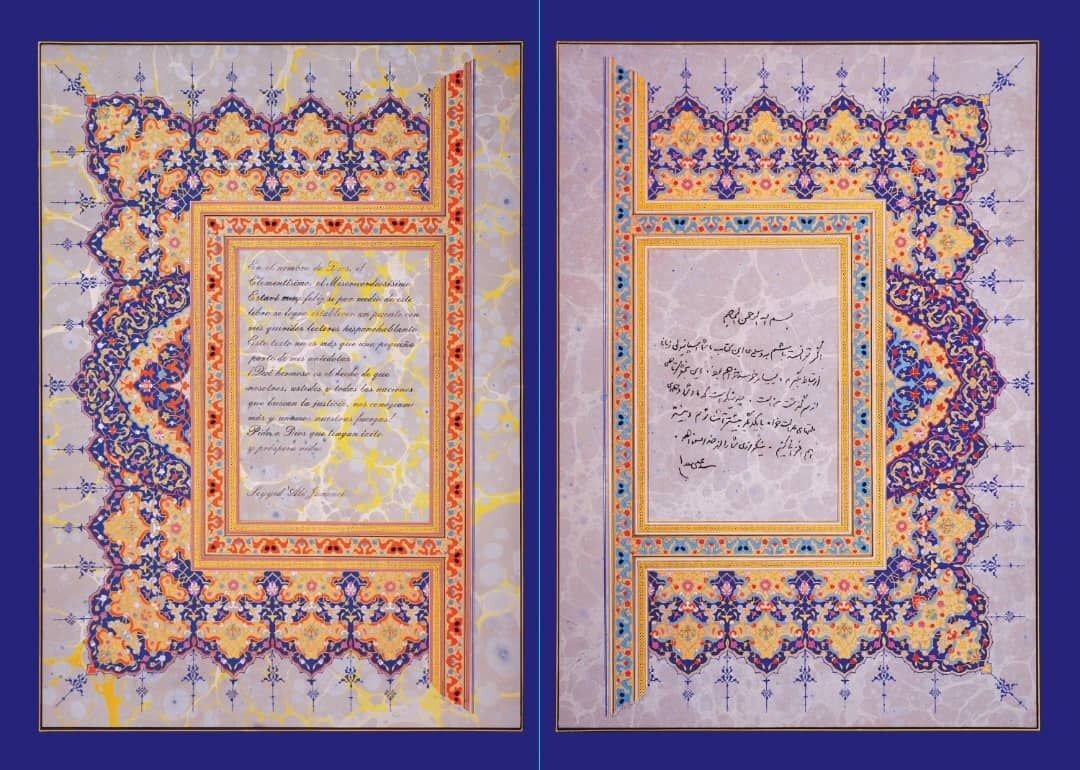 En el nombre de Dios, el
Clementísimo, el Misericordiosísimo
Estaré muy feliz si por medio de este
libro se logra establecer un puente con
mis queridos lectores hispanohablantes
Este texto no es más que una pequeña
parte de mis anécdotas
¡Qué hermoso es el hecho de que
nosotros, ustedes y todas las naciones
que buscan la justicia, nos conozcamos
más y unamos nuestras fuerzas!
Pido a Dios que tengan éxito
y próspera vida
Seyyed Ali Jamenei
بسم الله الرحمن الرحیم
اگر توانسته باشم به وسیله‌ی این کتاب با شما اسپانیولی زبانان
ارتباط بگیرم، بسیار خرسند خواهم بود. این
از سرگذشت من است. چه نیکو است که ما و شما و همه‌ی
ملتهای عدالتخواه با یکدیگر بیشتر آشنا شویم و
نیکروزی شما را از خداوند